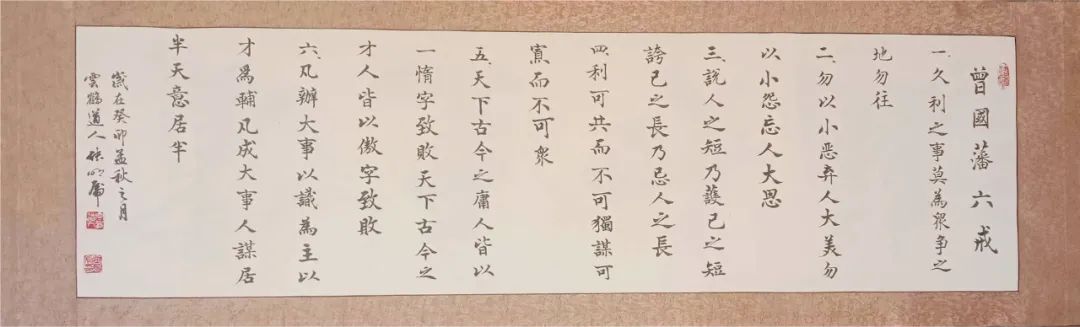 曾國藩六戒
一、久利之事莫為衆争之
地勿往
二、勿以小恶弃人大美勿
以小怨忘人大恩
三、說人之短乃護己之短
誇己之長乃忌人之長
四、利可共而不可獨謀可
寡而不可衆
五、天下古今之庸人皆以
一惰字致敗天下古今之
才人皆以傲字致敗
六、凡辦大事以識為主以
才爲輔凡成大事人謀居
半天意居半
歲在癸卯孟秋之月
雲鶴道人